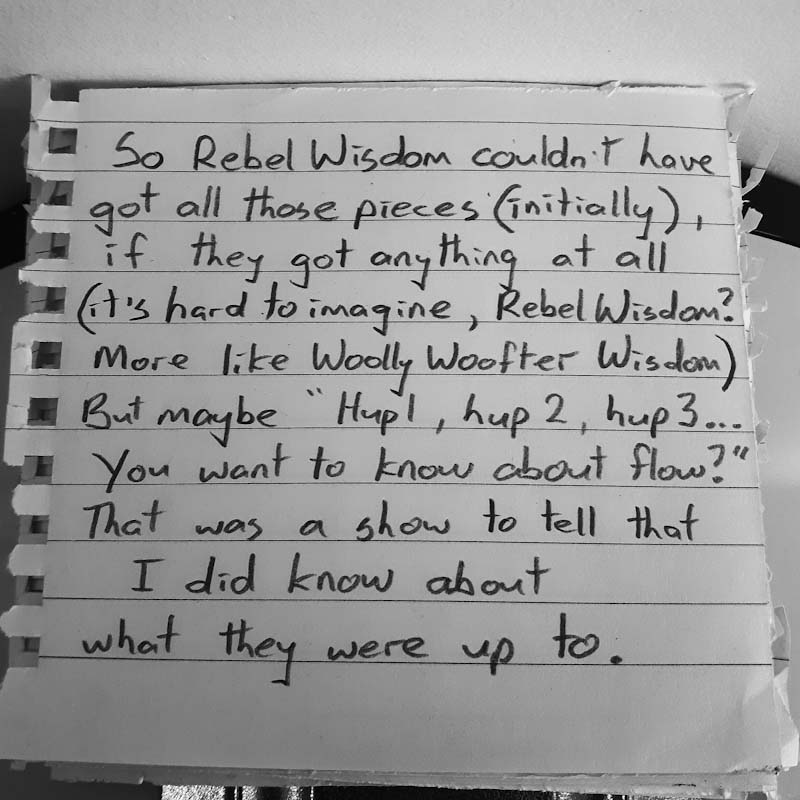 So Rebel Wisdom couldn't have
got all those pieces (initially),
if they got anything at all
(it's hard to imagine, Rebel Wisdom?
More like Woolly Woofter Wisdom)
But maybe "Hup 1, hup 2, hup 3...
You want to know about flow?"
That was a show to tell that
I did know about
what they were up to.